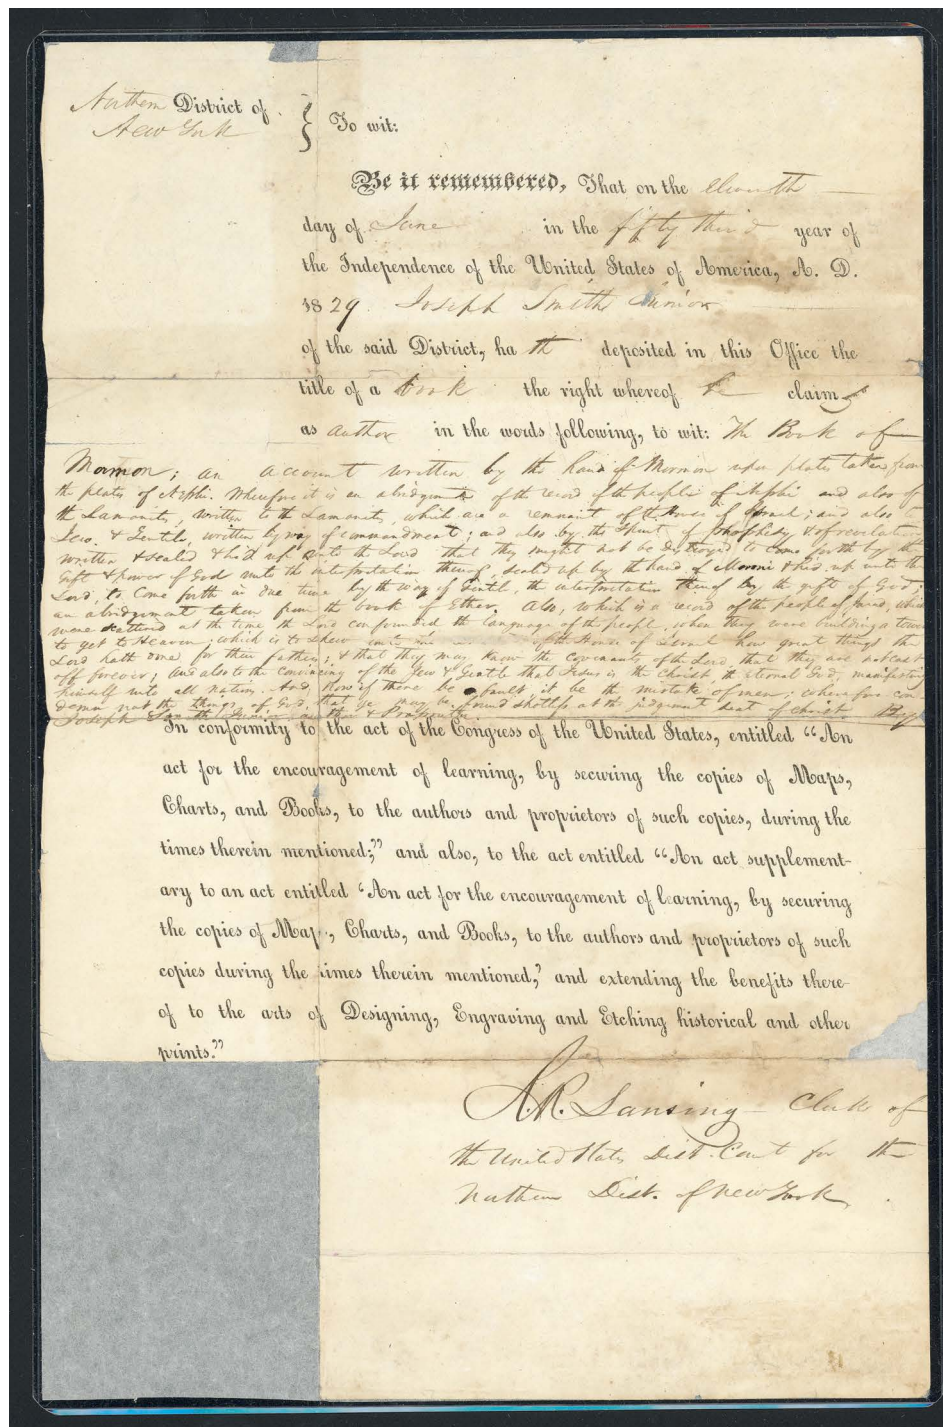 Northern District of
New York
To wit:
Be it remembered, That on the eleventh
day of June in the fifty third year of
the Independence of the United States of America, A. D.
1829 Joseph Smith Junior
of the said District, ha th deposited in this Office the
title of a book the right whereof he claim s
as author in the words following, to wit: The Book of
Mormon; an account written by the hand of Mormon upon plates taken from
the plates of Nephi. Wherefore it is an abridgment of the record of the people of Nephi and also of
the Lamanites, written to the Lamanites, which are a remnant of the House of Israel; and also to
Jew & Gentile, written by way of commandment; and also by the Spirit of Prophesy & of revelation
written & sealed & hid up unto the Lord that they might not be destroyed to come forth by the
gift & power of God unto the interpretation thereof, sealed up by the hand of Moroni & hid up unto the
Lord, to come forth in due time by the way of Gentile, the interpretation thereof by the gift of God;
an abridgment taken from the book of Ether. Also, which is a record of the people of Jared, which
were scattered at the time the Lord confounded the language of the people when they were building a tower
to get to Heaven; which is to shew unto the of the House of Israel how great things the
Lord hath done for their fathers; & that they may know the covenants of the Lord, that they are not cast
off forever; and also to the convincing of the Jew & Gentile that Jesus is the Christ, the Eternal God, manifesting
himself unto all nations. And now if there be a fault, it be the mistake of men; wherefore con
demn not the things of God, that ye may be found spotless at the judgement seat of Christ. By
Joseph Smith Junior Author & Proprietor.
In conformity to the act of the Congress of the United States, entitled “An
act for the encouragement of learning, by securing the copies of Maps,
Charts, and Books, to the authors and proprietors of such copies, during the
times therein mentioned;” and also, to the act entitled “An act supplement-
ary to an act entitled ‘An act for the encouragement of learning, by securing
the copies of Maps, Charts, and Books, to the authors and proprietors of such
copies during the times therein mentioned,’ and extending the benefits there-
of to the arts of Designing, Engraving and Etching historical and other
prints.”
R. R. Lansing Clerk of
the United States Dist. Court for the
Northern Dist. of New York